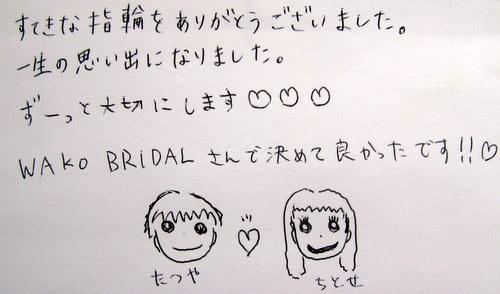 すてきな指輪をありがとうございました。
一生の思い出になりました。
ずーっと大切にします♡♡♡
WAKO BRIDAL さんで決めて良かったです!!♡
たつや
ちとせ